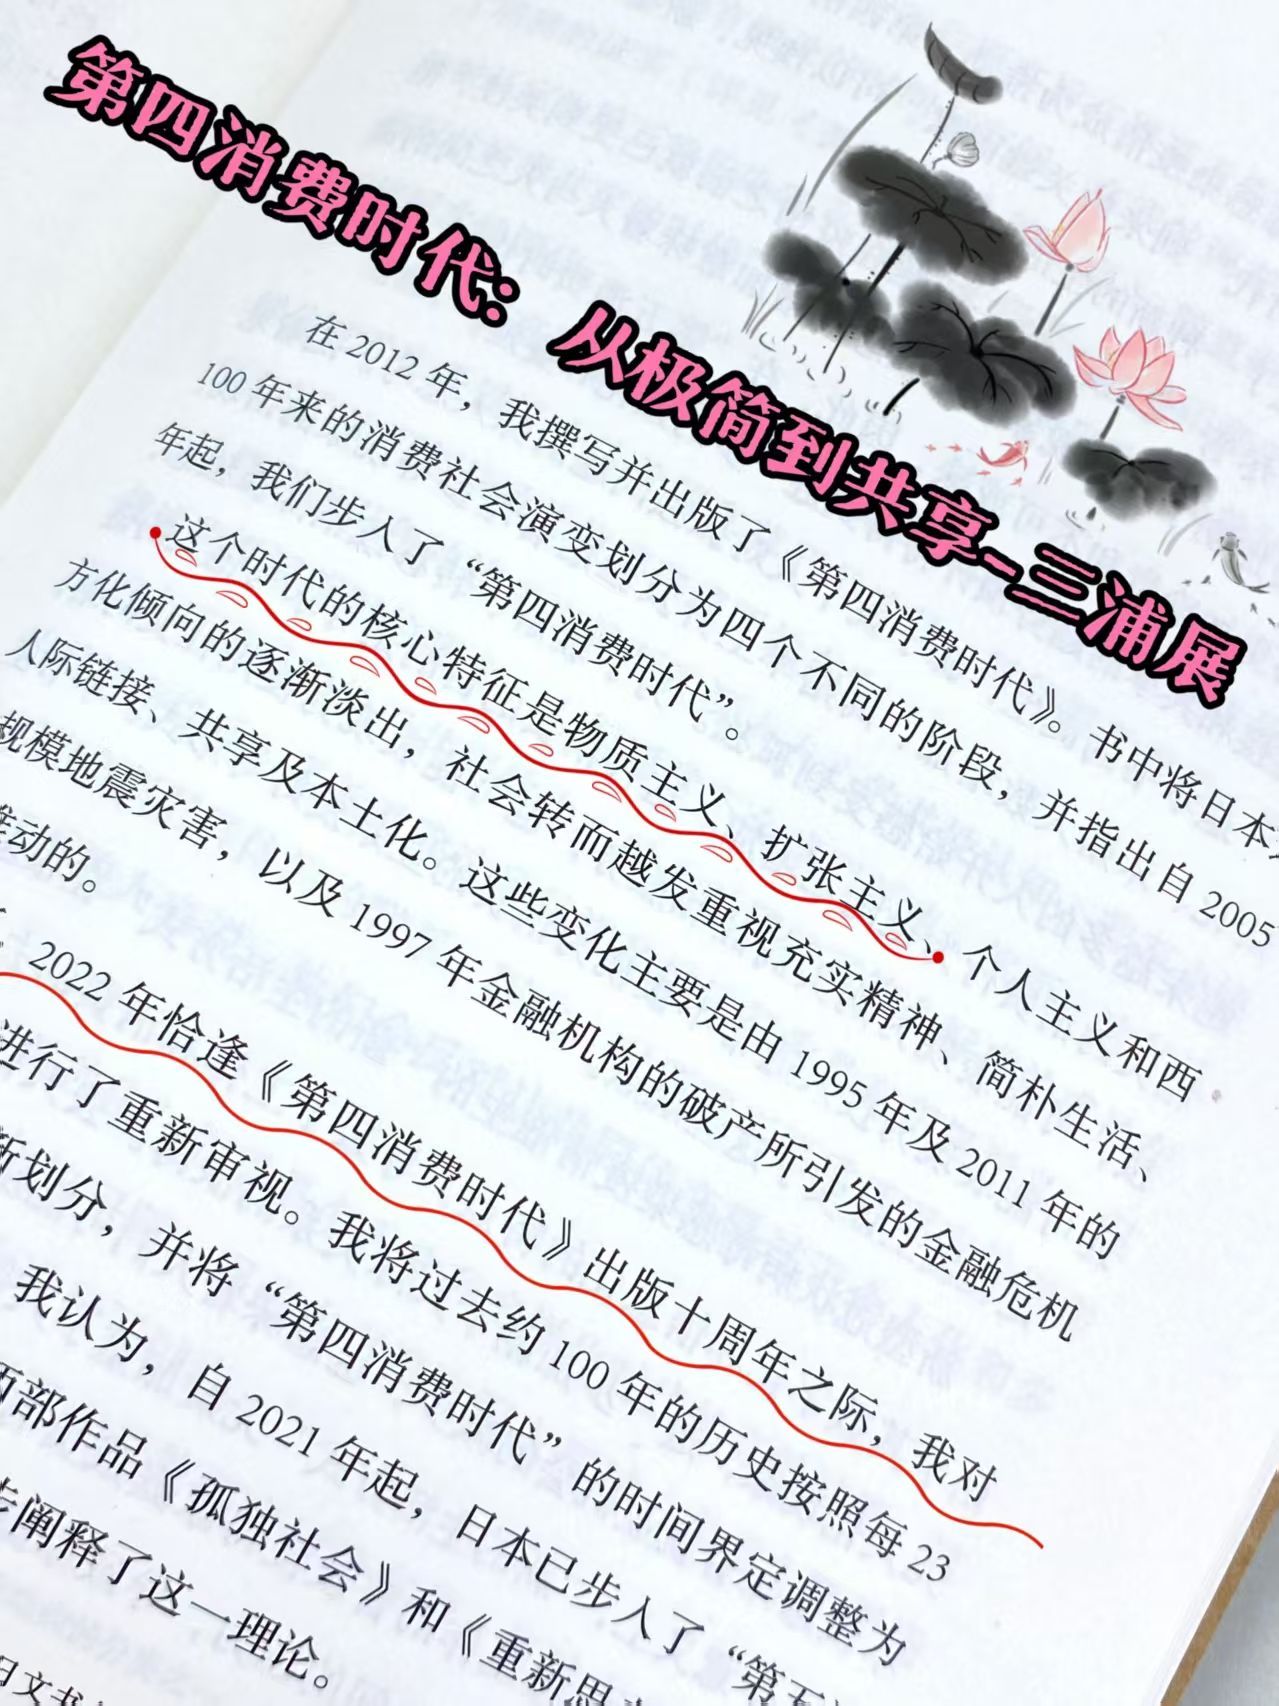 第四消费时代：从极简到共享-三浦展
在 2012 年，我撰写并出版了《第四消费时代》。书中将日本
100 年来的消费社会演变划分为四个不同的阶段，并指出自 2005
年起，我们步入了“第四消费时代”。
这个时代的核心特征是物质主义、扩张主义、个人主义和西
方化倾向的逐渐淡出，社会转而越发重视充实精神、简朴生活、
人际链接、共享及本土化。这些变化主要是由 1995 年及 2011 年的
规模地震灾害，以及 1997 年金融机构的破产所引发的金融危机
推动的。
2022 年恰逢《第四消费时代》出版十周年之际，我对
进行了重新审视。我将过去约 100 年的历史按照每 23
新划分，并将“第四消费时代”的时间界定调整为
我认为，自 2021 年起，日本已步入了“第五
两部作品《孤独社会》和《重新思
步阐释了这一理论。
日文书